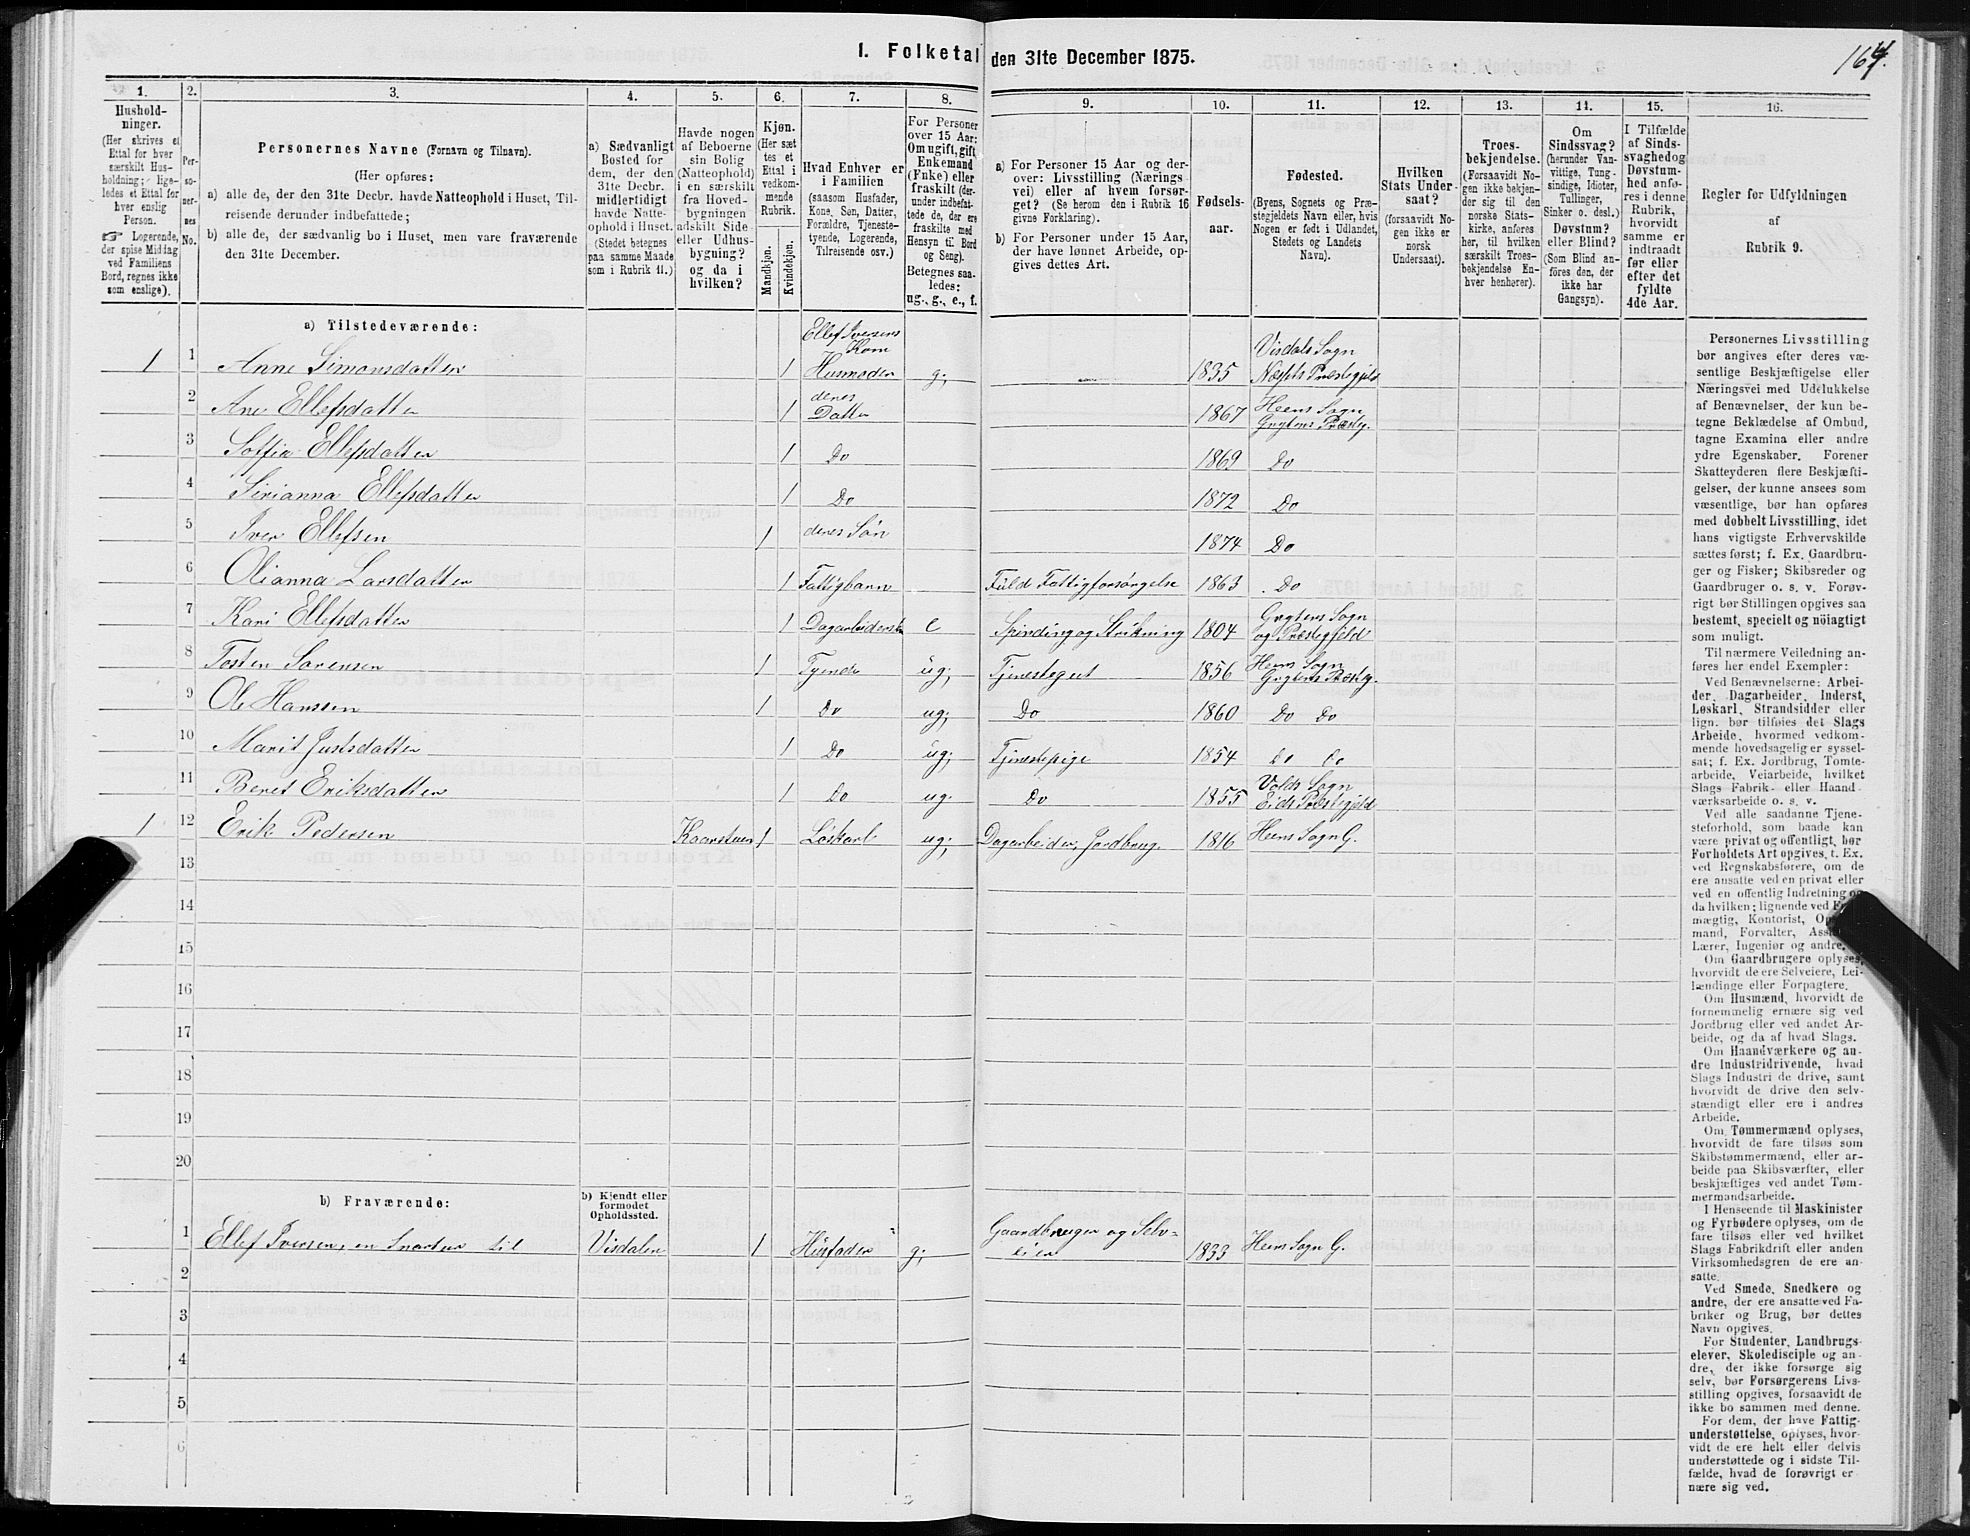 I. Folketal den 31te December 1875.
164.
1.
Hushold-
ninger.
(Her skrives et
Ettal for hver
særskilt Hus-
holdning; lige-
ledes et Ettal for
hver enslig
Person.
☞ Logerende,
der spise Middag
ved Familiens
Bord, regnes ikke
som enslige).
2.
Per-
so-
ner-
nes
No.
3.
Personernes Navne (Fornavn og Tilnavn).
(Her opføres:
a) alle de, der den 31te Decbr. havde Natteophold i Huset, Til-
reisende derunder indbefattede;
b) alle de, der sædvanlig bo i Huset, men vare fraværende
den 31te December.
4.
a) Sædvanligt
Bosted for
dem, der den
31te Decbr.
midlertidigt
havde Natte-
ophold i Huset.
(Stedet betegnes
paa samme Maade
som i Rubrik 11.)
5.
Havde nogen
af Beboerne
sin Bolig
(Natteophold)
i en særskilt
fra Hoved-
bygningen
adskilt Side-
eller Udhus-
bygning?
og da i
hvilken?
6.
Kjøn.
(Her sæt-
tes et
Ettal i
vedkom-
mende
Rubrik.
Mandkjøn.
Kvindekjøn.
7.
Hvad Enhver er
i Familien
(saasom Husfader,
Kone, Søn, Datter,
Forældre, Tjeneste-
tyende, Logerende,
Tilreisende osv.)
8.
For Personer
over 15 Aar:
Om ugift, gift,
Enkemand
(Enke) eller
fraskilt (der-
under indbefat-
tede de, der ere
fraskilte med
Hensyn til Bord
og Seng).
Betegnes saa-
ledes:
ug., g., e., f.
9.
a) For Personer 15 Aar og der-
over: Livsstilling (Nærings-
vei) eller af hvem forsør-
get? (Se herom den i Rubrik 16
givne Forklaring).
b) For Personer under 15 Aar,
der have lønnet Arbeide, op-
gives dettes Art.
10.
Fødsels-
aar.
11.
Fødested.
(Byens, Sognets og Præ-
stegjeldets Navn eller, hvis
Nogen er født i Udlandet,
Stedets og Landets
Navn).
12.
Hvilken
Stats Under-
saat?
(forsaavidt No-
gen ikke er
norsk
Undersaat).
13.
Troes-
bekjendelse.
(Forsaavidt No-
gen ikke bekjen-
der sig til den
norske Stats-
kirke, anføres
her, til hvilken
særskilt Troes-
bekjendelse En-
hver henhører).
14.
Om
Sindssvag?
(herunder Van-
vittige, Tung-
sindige, Idioter,
Tullinger,
Sinker o. desl.)
Døvstum?
eller Blind?
(Som Blind an-
føres den, der
ikke har
Gangsyn).
15.
I Tilfælde
af Sinds-
svaghed og
Døvstum-
hed anfø-
res i denne
Rubrik,
hvorvidt
samme er
indtraadt
før eller
efter det
fyldte
4de Aar.
16.
Regler for Udfyldningen
af
Rubrik 9.
a) Tilstedeværende:
1 1 Anne Simonsdatter 1 Ellef Iversens Kone Husmoder g; 1835 Visdals Sogn Næssets Præstegjeld
2 Ane Ellefsdatter 1 denes Datter 1867 Heens Sogn Grytens Præsteg.
3 Soffie Ellefsdatter 1 Do 1869 Do
4 Sirianna Ellefsdatter 1 Do 1872 Do
5 Iver Ellefsen 1 denes Søn 1874 Do
6 Olianna Larsdatter 1 Fattigbarn Fuld Fattigforsørgelse 1863 Do
7 Kari Ellefsdatter 1 Dagarbeiderske e Spinding og Strikning 1804 Grytens Sogn og Præstegjeld
8 Tosten Sørensen 1 Tyende ug; Tjenestegut 1856 Heens Sogn Grytens Præsteg.
9 Ole Hanssen 1 Do ug; Do 1860 Do Do
10 Marit Justsdatter 1 Do ug; Tjenestepige 1854 Do Do
11 Beret Eriksdatter 1 Do ug. Do 1855 Volds Sogn Eids Præstegjeld
1 12 Erik Pedersen Kaarstuen 1 Løskarl ug; Dagarbeider, Jordbrug. 1816 Heens Sogn G.
13
14
15
16
17
18
19
20
b) Fraværende:
b) Kjendt eller
formodet
Opholdssted.
1 Ellef Iversen, en Snartur til Visdalen 1 Husfader g; Gaardbruger og Selv-
eier 1833 Heens Sogn G.
2
3
4
5
6
Personernes Livsstilling
bør angives efter deres væ-
sentlige Beskjæftigelse eller
Næringsvei med Udelukkelse
af Benævnelser, der kun be-
tegne Beklædelse af Ombud,
tagne Examina eller andre
ydre Egenskaber. Forener
Skatteyderen flere Beskjæfti-
gelser, der kunne ansees som
væsentlige, bør han opføres
med dobbelt Livsstilling, idet
hans vigtigste Erhvervskilde
sættes først; f. Ex. Gaardbru-
ger og Fisker; Skibsreder og
Gaardbruger o. s. v. Forøv-
rigt bør Stillingen opgives saa
bestemt, specielt og nöiagtigt
som muligt.
Til nærmere Veiledning an-
føres her endel Exempler:
Ved Benævnelserne: Arbei-
der, Dagarbeider, Inderst,
Løskarl, Strandsidder eller
lign. bør tilføies det Slags
Arbeide, hvormed vedkom-
mende hovedsagelig er syssel-
sat; f. Ex. Jordbrug, Tomte-
arbeide, Veiarbeide, hvilket
Slags Fabrik- eller Haand-
værksarbeide o. s. v.
Ved alle saadanne Tjene-
steforhold, som baade kan
være privat og offentligt, bør
Forholdets Art opgives, t. Ex.
ved Regnskabsførere, om de
ere ansatte ved en privat eller
ved en offentlig Indretning og
da hvilken; lignende ved
mægtig, Kontorist,
mand, Forvalter,
Lærer, Ingeniør og andre.
Om Gaardbrugere oplyses,
hvorvidt de ere Selveiere, Lei-
lændinge eller Forpagtere.
Om Husmænd, hvorvidt de
fornemmelig ernære sig ved
Jordbrug eller ved andet Ar-
beide, og da af hvad Slags.
Om Haandværkere og an-
dre Industridrivende, hvad
Slags Industri de drive, samt
hvorvidt de drive den selv-
stændigt eller ere i andres
Arbeide.
Om Tømmermænd oplyses,
hvorvidt de fare tilsøs som
Skibstømmermænd, eller ar-
beide paa Skibsværfter, eller
beskjæftiges ved andet Tøm-
mermandsarbeide.
I Henseende til Maskinister
og Fyrbødere oplyses, om de
fare tilsøs eller ved hvilket
Slags Fabrikdrift eller anden
Virksomhedsgren de ere an-
satte.
Ved Smede, Snedkere og
andre, der ere ansatte ved Fa-
briker og Brug, bør dettes
Navn opgives.
For Studenter, Landbrugs-
elever, Skoledisciple og an-
dre, der ikke forsørge sig
selv, bør Forsørgerens Livs-
stilling opgives, forsaavidt de
ikke bo sammen med denne.
For dem, der have Fattig-
understøttelse, oplyses, hvor-
vidt de ere helt eller delvis
understøttede og i sidste Til-
fælde, hvad de forøvrigt er-
nære sig ved.